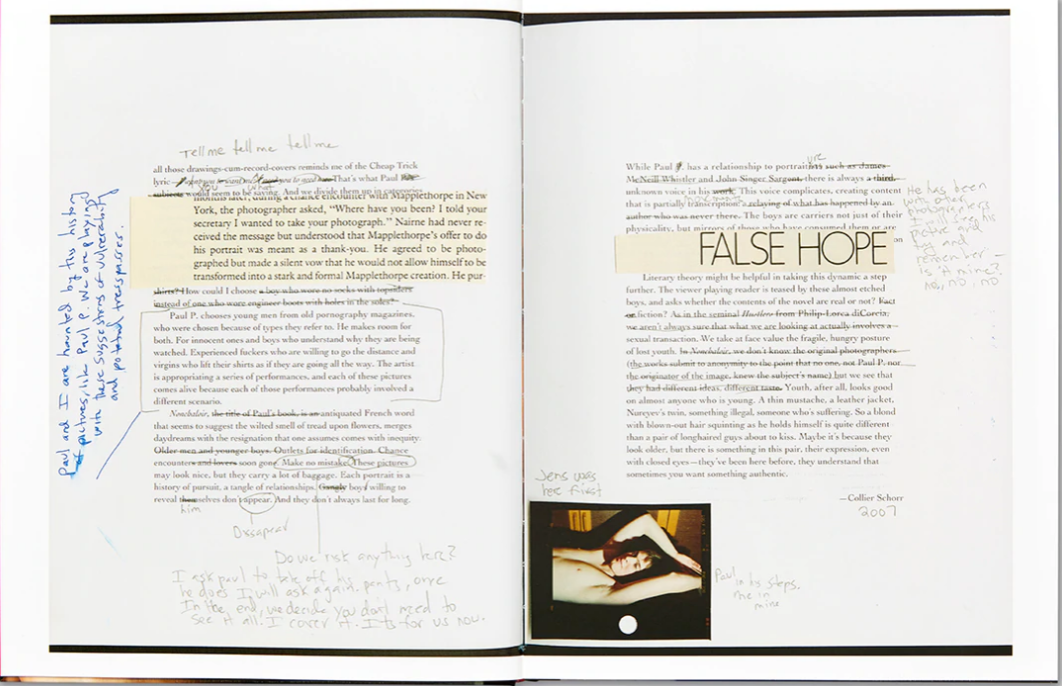 Tell me tell me tell me
all those drawings-cum-record-covers reminds me of the Cheap Trick
lyric— That's what Paul
you what
subjects would seem to be saying. And we divide them up in categories
months later, during a chance encounter with Mapplethorpe in New
York, the photographer asked, “Where have you been? I told your
secretary I wanted to take your photograph.” Nairne had never re-
ceived the message but understood that Mapplethorpe's offer to do
his portrait was meant as a thank-you. He agreed to be photo-
graphed but made a silent vow that he would not allow himself to be
transformed into a stark and formal Mapplethorpe creation. He pur-
shirts? How could I choose a boy who wore no socks with topsiders
instead of one who wore engineer boots with holes in the soles?
Paul P. chooses young men from old pornography magazines,
who were chosen because of types they refer to. He makes room for
both. For innocent ones and boys who understand why they are being
watched. Experienced fuckers who are willing to go the distance and
virgins who lift their shirts as if they are going all the way. The artist
is appropriating a series of performances, and each of these pictures
comes alive because each of those performances probably involved a
different scenario.
Nonchaloir, the title of Paul's book, is an antiquated French word
that seems to suggest the wilted smell of tread upon flowers, merges
daydreams with the resignation that one assumes comes with inequity.
Older men and younger boys. Outlets for identification. Chance
encounters and lovers soon gone. Make no mistake. These pictures
may look nice, but they carry a lot of baggage. Each portrait is a
history of pursuit, a tangle of relationships. Gangly boys willing to
reveal themselves don't appear. And they don't always last for long.
him
Dissapear
Do we risk anything here?
I ask paul to take off his pants, once
he does I will ask again.
In the end, we decide you don't need to
see it all. I cover it. Its for us now.
Paul and I are haunted by this history
of pictures, like Paul P. We are playing
with these suggestions of vulnerability
and potential trespasses.
While Paul P. has a relationship to portraiture such as James
McNeill Whistler and John Singer Sargent, there is always a third,
unknown voice in his work. This voice complicates, creating content
that is partially transcription, a relaying of what has happened by an
author who was never there. The boys are carriers not just of their
physicality, but mirrors of those who have consumed them or are
on
FALSE HOPE
Literary theory might be helpful in taking this dynamic a step
further. The viewer playing reader is teased by these almost etched
boys, and asks whether the contents of the novel are real or not? Fact
or fiction? As in the seminal Hustlers from Philip-Lorca diCorcia;
we aren't always sure that what we are looking at actually involves a
sexual transaction. We take at face value the fragile, hungry posture
of lost youth. In Nonchaloir, we don't know the original photographers
(the works submit to anonymity to the point that no one, not Paul P. nor
the originator of the image, knew the subject's name) but we see that
they had different ideas, different taste. Youth, after all, looks good
on almost anyone who is young. A thin mustache, a leather jacket,
Nureyev's twin, something illegal, someone who's suffering. So a blond
with blown-out hair squinting as he holds himself is quite different
than a pair of longhaired guys about to kiss. Maybe it's because they
look older, but there is something in this pair, their expression, even
with closed eyes—they've been here before, they understand that
sometimes you want something authentic.
—Collier Schorr
2007
He has been
with other
photographers
I will see his
picture and
try and
remember –
is it mine?
no, no, no
Jens was
here first
Paul in his steps,
me in
mine